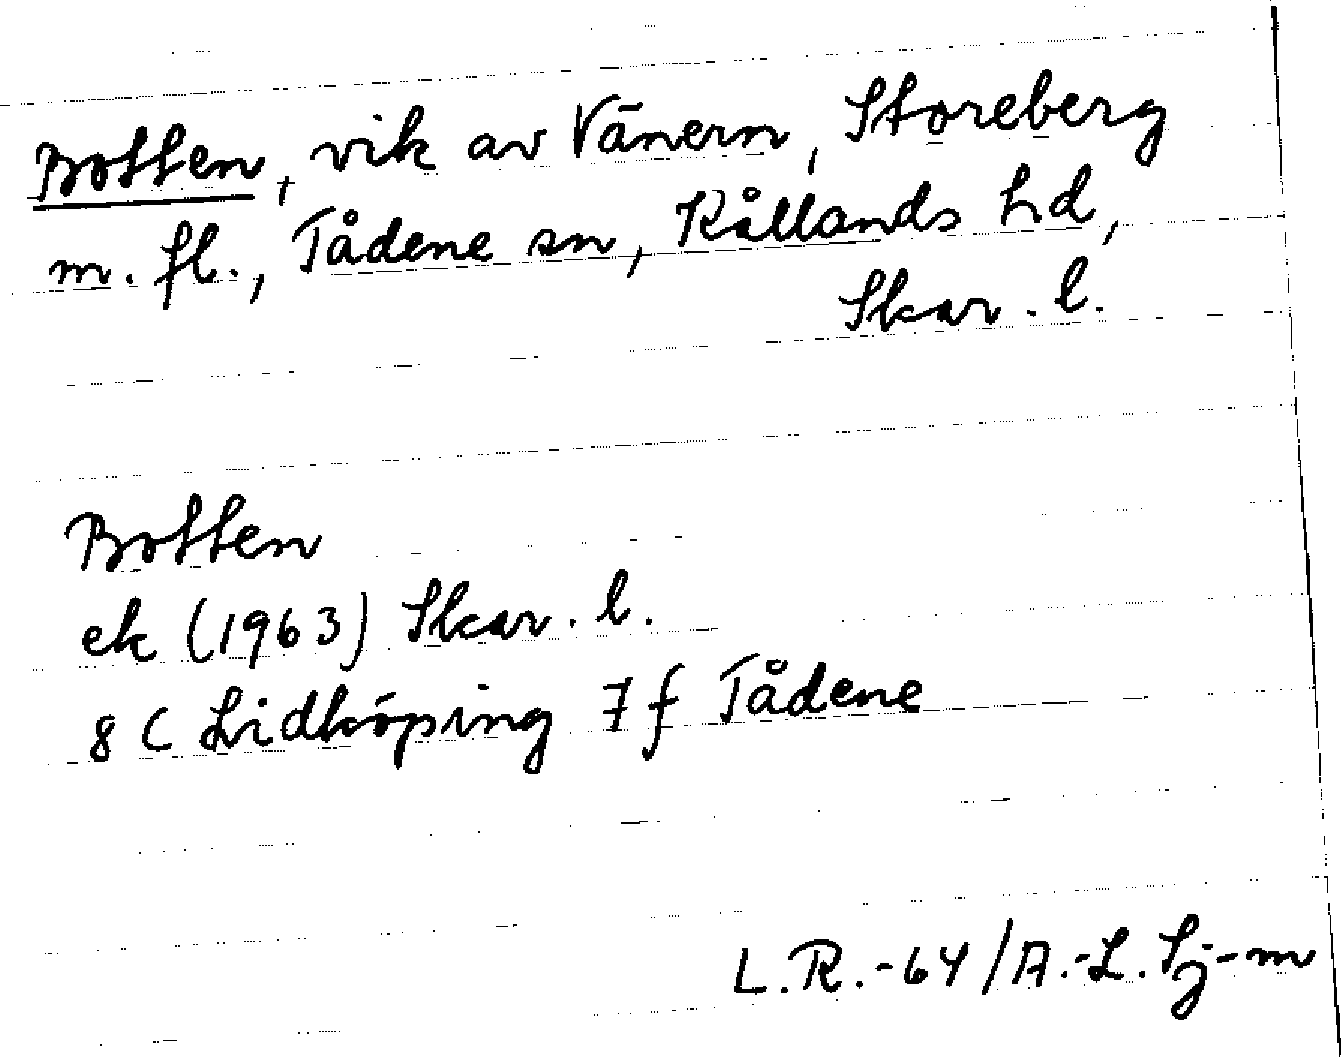 Botten, vik av Vänern, Storeberg
m. fl., Tådene sn, Kållands hd,
Skar. l.
Botten
ek (1963) Skar. l.
8 C Lidköping 7 f Tådene
L.R.-64/A.-L. Sj-m